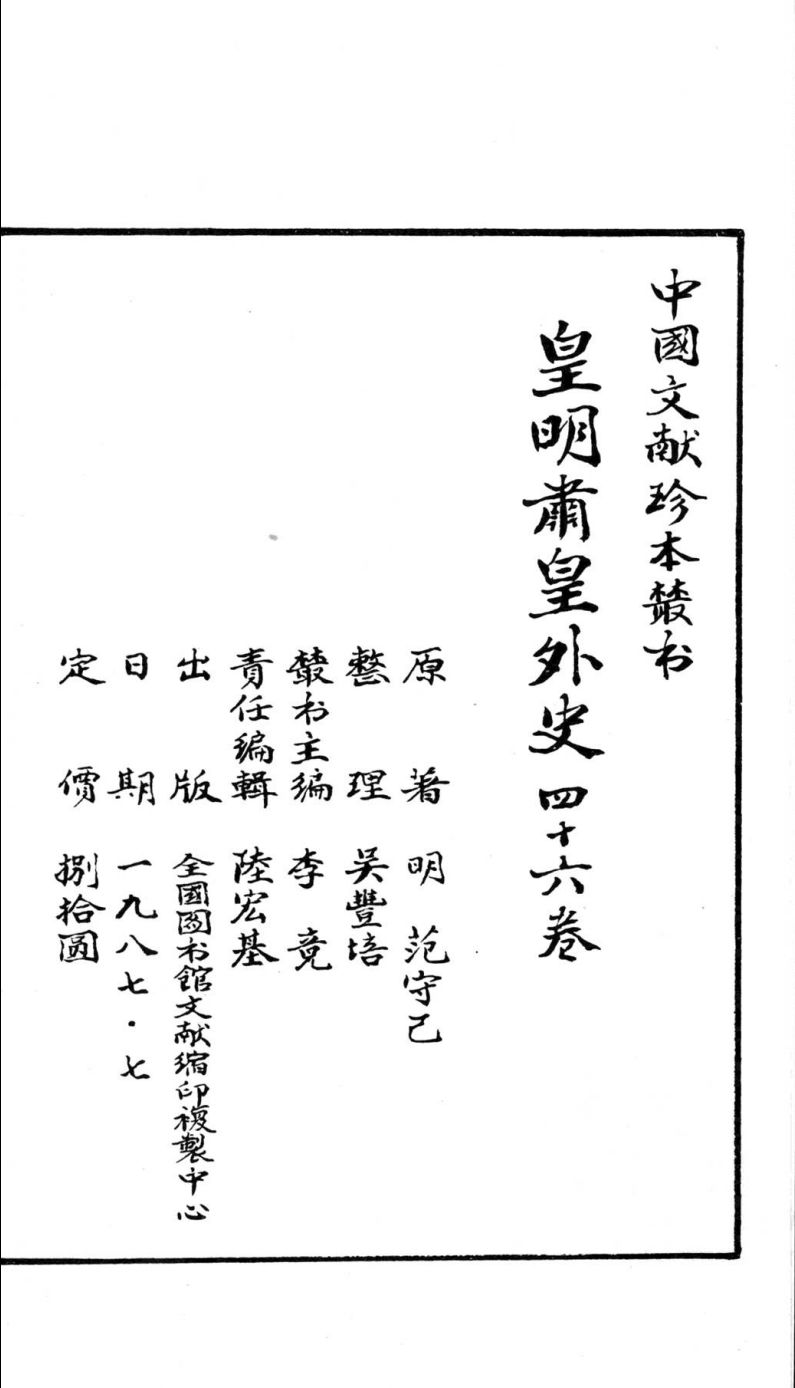 中國文献珍本叢书
皇明肅皇外史 四十六卷
原著 明 范守己
整理 吴豐培
叢书主编 李竟
責任编輯 陸宏基
出版 全國图书館文献缩印複製中心
日期 一九八七·七
定價 捌拾圆